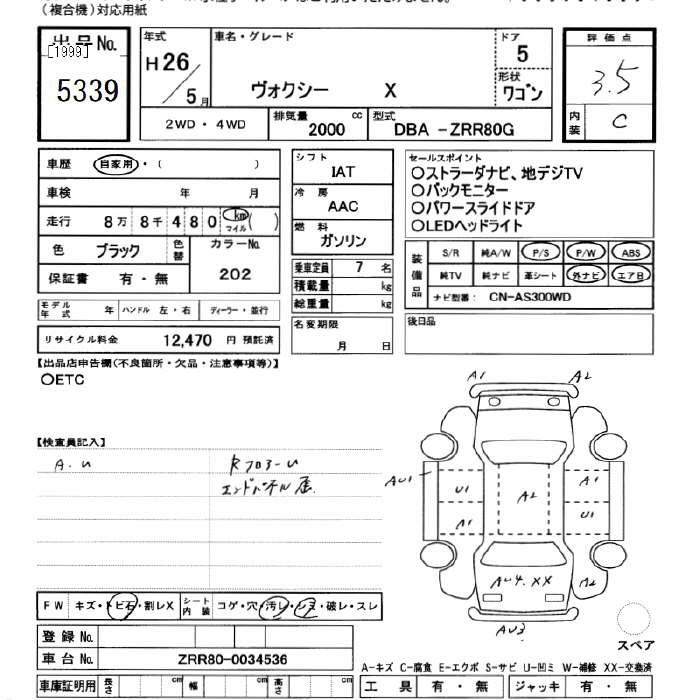 (複合機)対応用紙
出品No.
[1999]
5339
年式
H26/5月
車名・グレード
ヴォクシー X
ドア
5
形状
ワゴン
評価点
3.5
内装
C
2WD・4WD
排気量
2000 cc
型式
DBA -ZRR80G
車歴 自家用・( )
車検 年 月
走行 8万8千480 km マイル ( )
色 ブラック 色替
カラーNo.
202
保証書 有・無
モデル年式 年 ハンドル 左・右 ディーラー・並行
リサイクル料金 12,470 円 預託済
シフト
IAT
冷房
AAC
燃料
ガソリン
乗車定員 7 名
積載量 kg
総重量 kg
名変期限
月 日
セールスポイント
○ストラーダナビ、地デジTV
○バックモニター
○パワースライドドア
○LEDヘッドライト
装備品
S/R 純A/W P/S P/W ABS
純TV 純ナビ 革シート 外ナビ エアB
ナビ型番: CN-AS300WD
後日品
【出品店申告欄(不良箇所・欠品・注意事項等)】
○ETC
【検査員記入】
A.U
RフロアーU
エンドパネル歪
A1 A2
AU1
U1
A1
A2
A1
U1
AU4.XX
A2
AU3
スペア
FW キズ・トビ石・割レX
シート内装 コゲ・穴・汚レ・シミ・破レ・スレ
登録No.
車台No. ZRR80-0034536
A-キズ C-腐食 E-エクボ S-サビ U-凹ミ W-補修 XX-交換済
車庫証明用 長さ cm 幅 cm 高さ cm
工具 有・無 ジャッキ 有・無